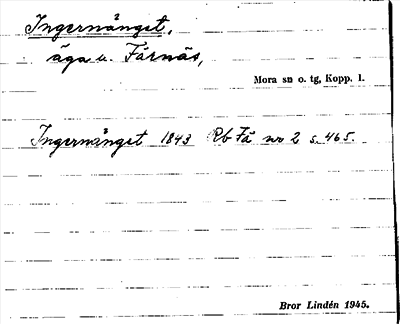 Ingermånget,
äga u. Färnäs,
Mora sn o. tg, Kopp. l.
Ingermånget 1843 Rb Få nr 2 s. 465.
Bror Lindén 1945.